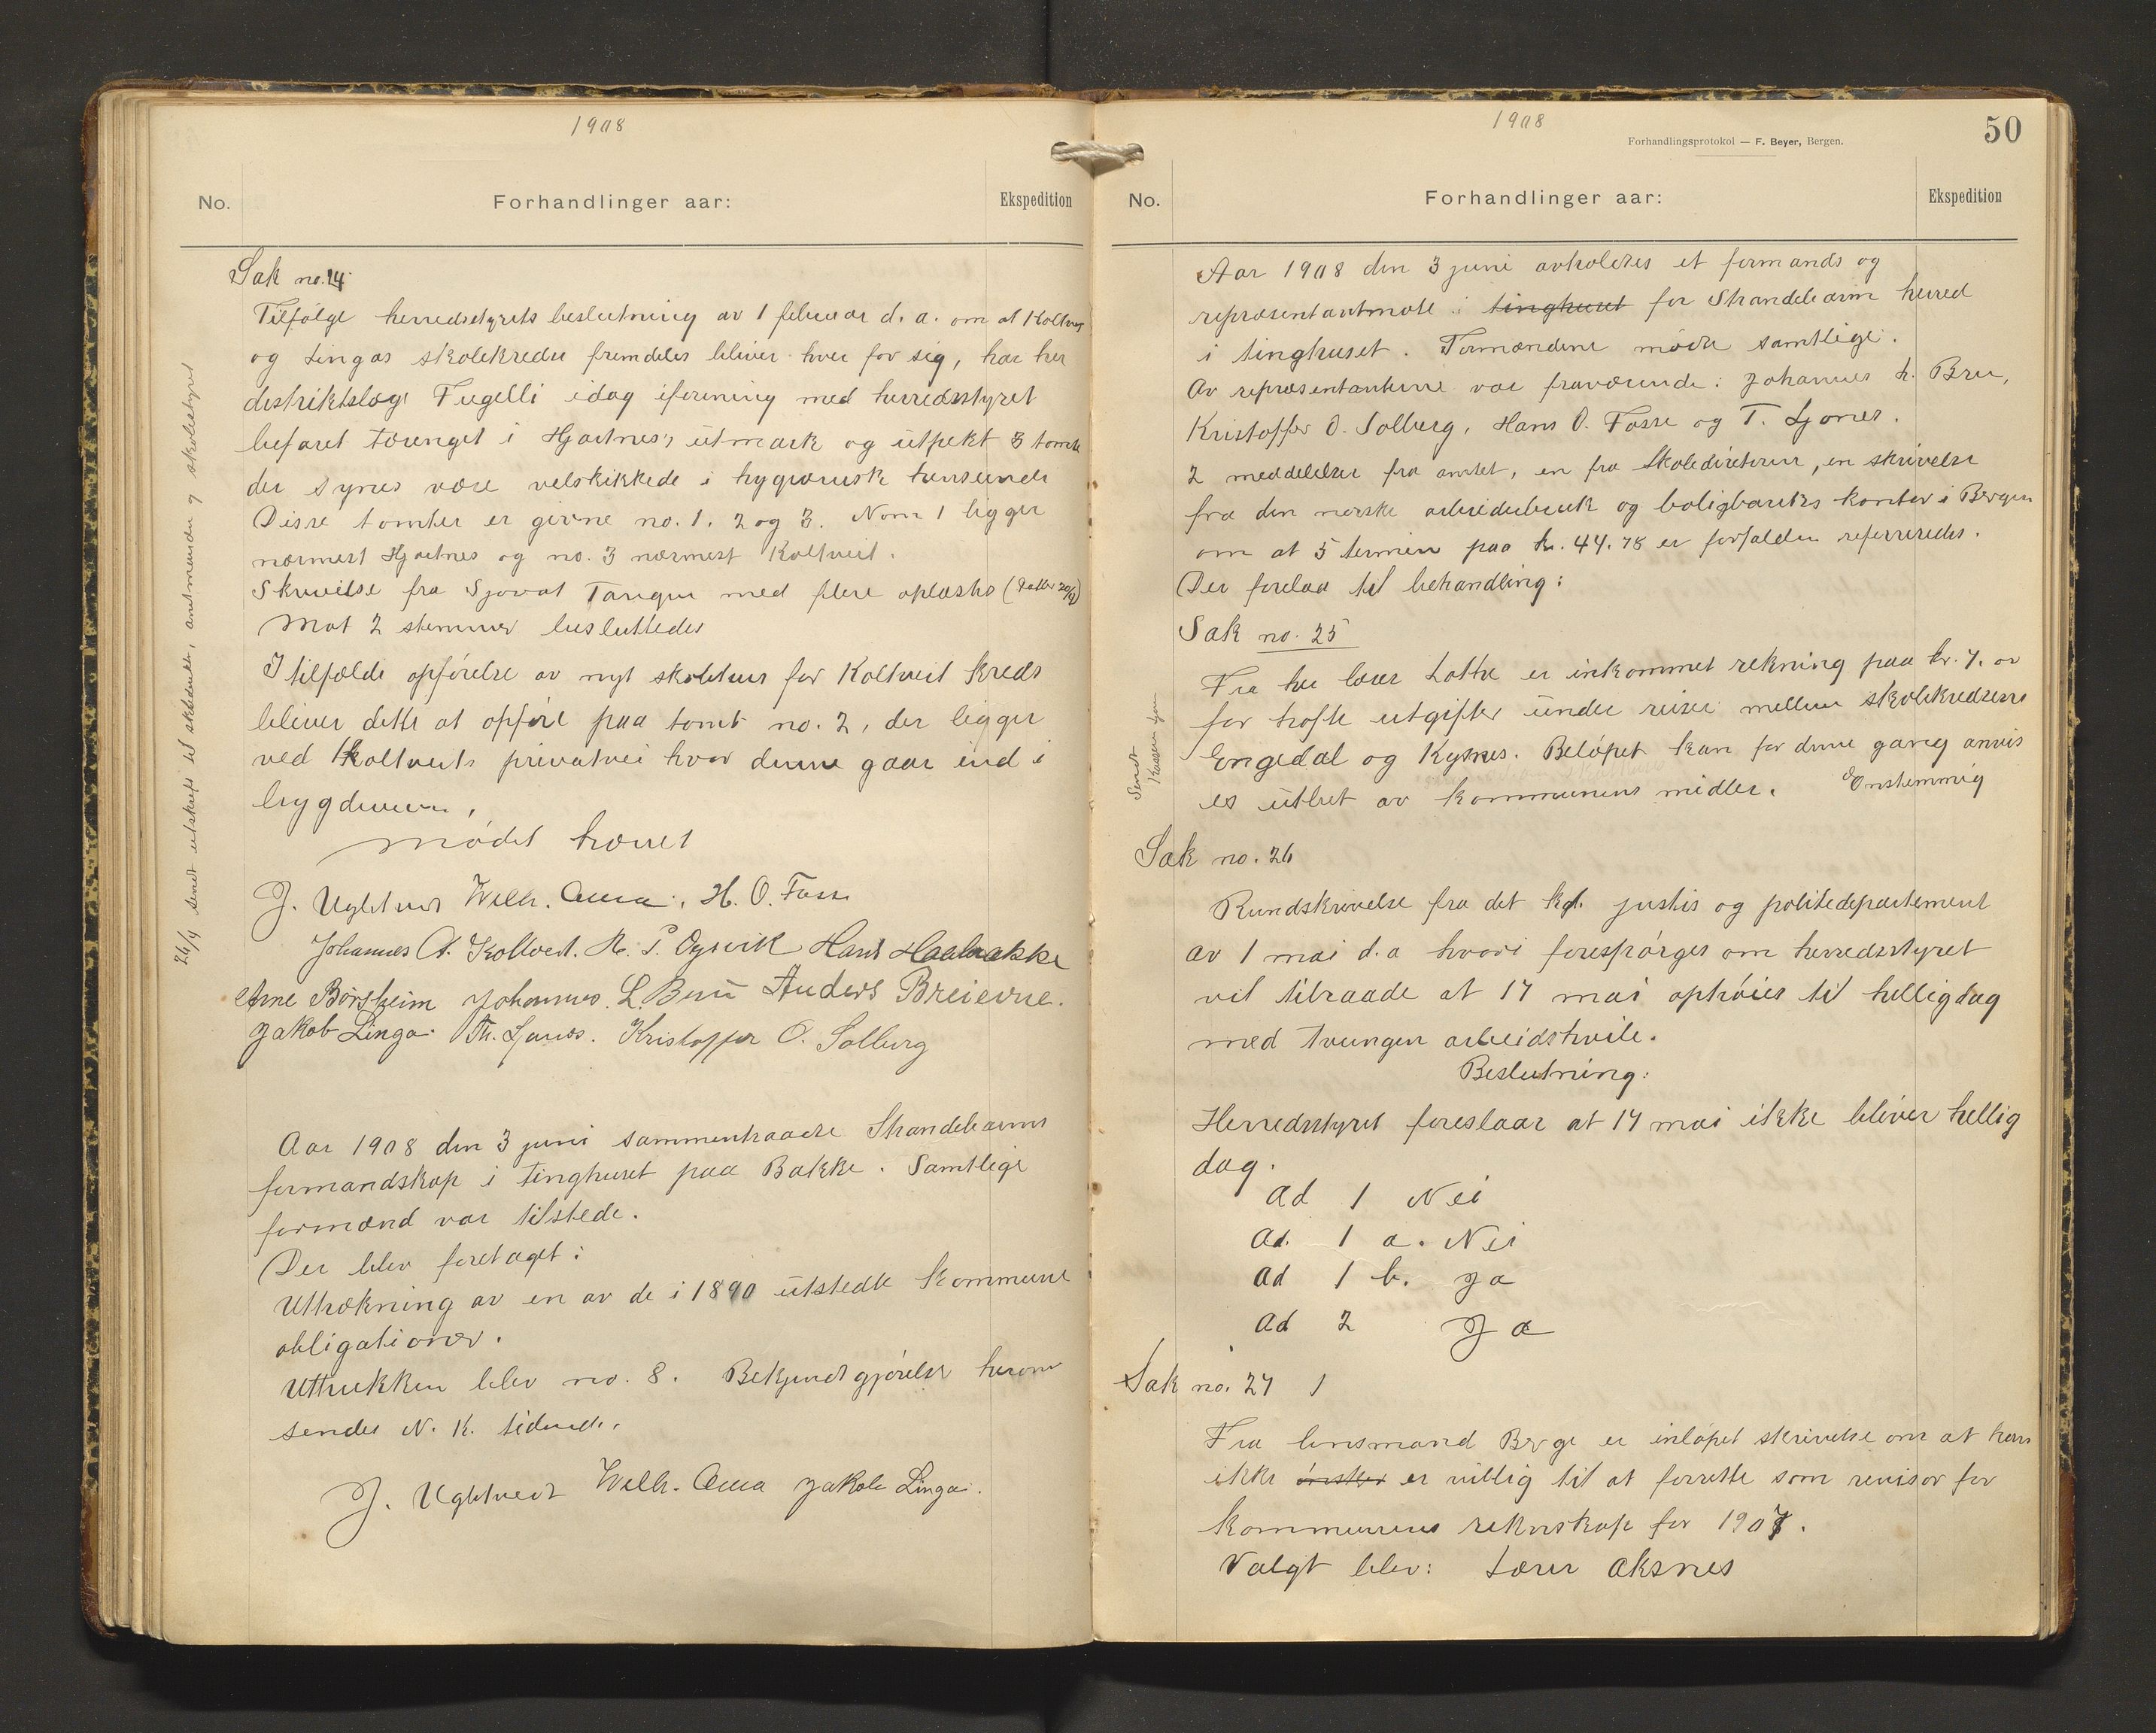 1908
No.
Forhandlinger aar:
Ekspedition
Sak no. 24
Tilfølge herredsstyrets beslutning av 1 februar d. a. om at Koltveit
og Lingas skolekredse fremdeles bliver hver for sig, har hr
distriktslæge Fugelli idag iforening med herredsstyret
befaret terænget i Hjartnes's utmark og utpekt 3 tomter
der synes være velskikkede i hygiænisk henseende
Disse tomter er givne no. 1. 2 og 3. Nom 1 ligger
nærmest Hjartnes og no. 3 nærmest Koltveit.
Skrivelse fra Sjovat Tangen med flere oplæstes
Mot 2 stemmer besluttedes
I tilfælde opførelse av nyt skolehus for Koltveit kreds
bliver dette at opføre paa tomt no. 2, der ligger
ved Koltveits privatvei hvor denne gaar ind i
bygdeveien.
Mødet hævet
J. Ugletveit Welh. Oma. H. O. Fosse
Johannes A. Koltveit. N. P. Øyjvik Hans Haalnakke
Arne Børsheim Johannes L. Bru Anders Breievne.
Jakob Linga. Th. Ljones. Kristoffer O. Solberg
26/9 sendt utskrift til skoledirekt, amtmanden og skolestyret
Aar 1908 den 3 juni sammentraadte Strandebarms
formandskap i tinghuset paa Bakke. Samtlige
formænd var tilstede.
Der blev foretaget:
Uttrækning av en av de i 1890 utstedte kommune
obligationer.
Uttrukken blev no. 8. Bekjendtgjørelse herom
sendes N. K. tidende.
J. Ugletveit Welh. Oma Jakob Linga.
1908
Forhandlingsprotokol — F. Beyer, Bergen.
50
No.
Forhandlinger aar:
Ekspedition
Aar 1908 den 3 juni avholdtes et formands og
repræsentantmøte i tinghuset for Strandebarm herred
i tinghuset. Formændene mødte samtlige.
Av repræsentanterne var fraværende: Johannes L. Bru,
Kristoffer O. Solberg, Hans O. Fosse og T. Ljones.
2 meddelelser fra amtet, en fra skoledirektøren, en skrivelse
fra den norske arbeiderbruk og boligbanks kontor i Bergen
om at 5 termin paa kr. 44.78 er forfalden refereredes.
Der forelaa til behandling:
Sak no. 25
Fra hr lærer Lothe er inkommet rekning paa kr. 7.00
for hafte utgifter under reiser mellem skolekredsene
Engedal og Kysnes. Beløpet kan for denne gang anvis
es utbet av kommunens midler. Enstemmig
Sendt
Kassereren
Sak no. 26
Rundskrivelse fra det kgl. justis og politidepartement
av 1 mai d. a hvori forespørges om herredsstyret
vil tilraade at 17 mai ophøies til helligdag
med tvungen arbeidshvile.
Beslutning:
Herredsstyret foreslaar at 17 mai ikke bliver hellig
dag.
Ad 1 Nei
Ad. 1 a. Nei
Ad 1 b. Ja
Ad 2 Ja
Sak no. 27 1
Fra lensmand Berge er inløpet skrivelse om at han
ikke ønsker er villig til at forrette som revisor for
kommunens rekneskap for 1907.
Valgt blev: Lærer Aksnes